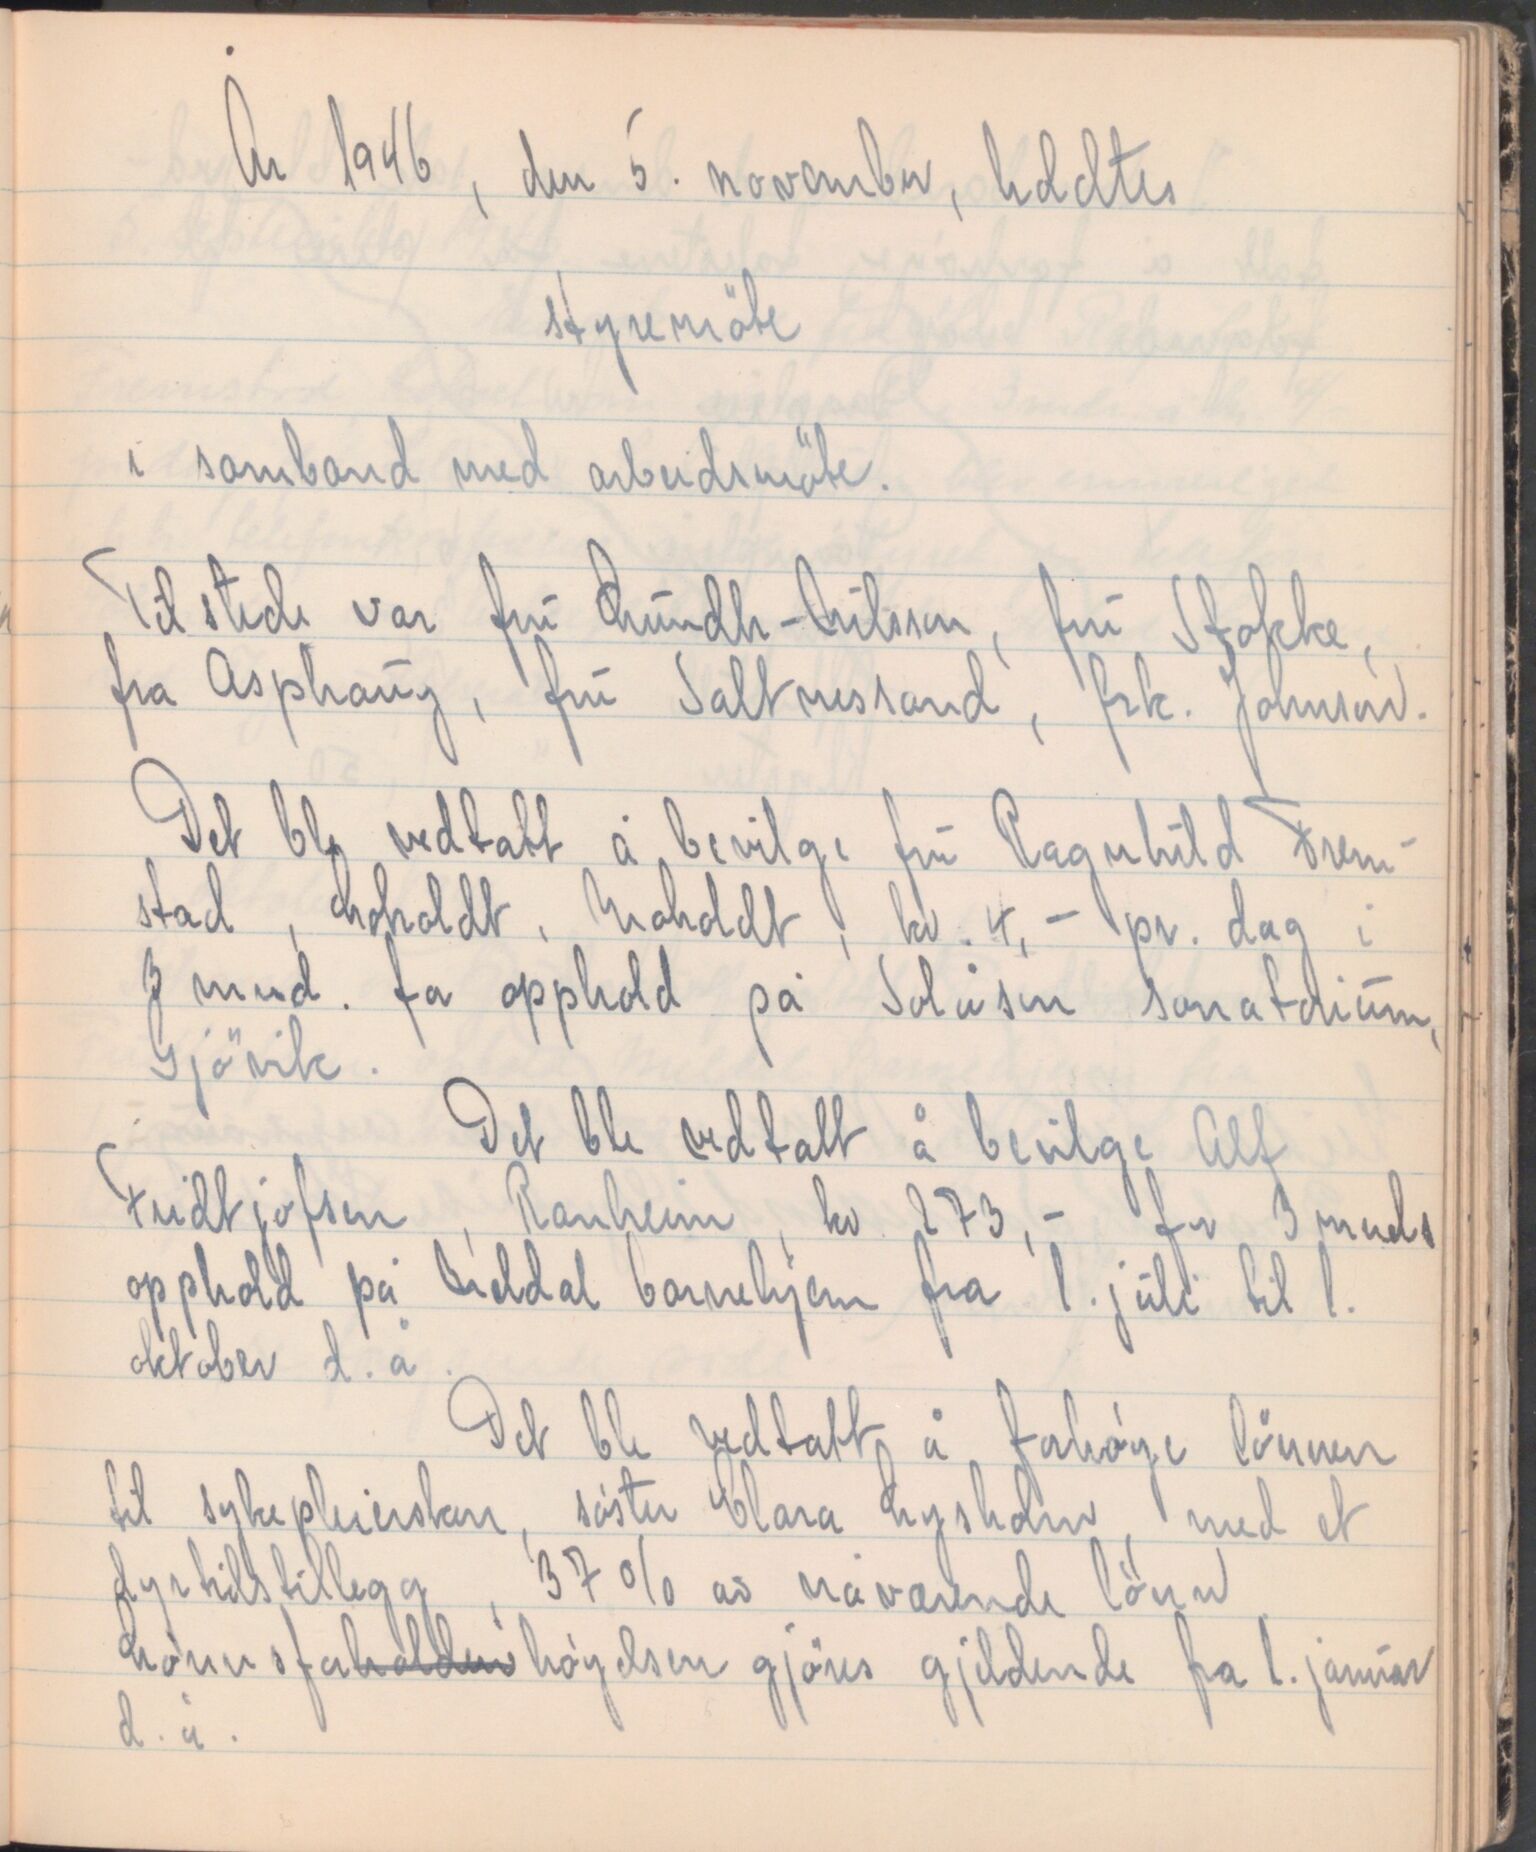 År 1946, den 5. november, holdtes
styremöte
i samband med arbeidsmöte.
Til stede var frü Lündh-Nilssen, frü Stokke,
fra Asphaüg, frü Saltnessand, frk. Johnsen.
Det ble vedtatt å bevilge frü Ragnhild Frem-
stad, Moholdt, kr. 4,- pr. dag i
3 mnd. for opphold på Solåsen sanatorium,
Gjövik.
Det ble vedtatt å bevilge Alf
Fridtjofsen, Ranheim, kr 273,- for 3 mnds
opphold på Meldal barnehjem fra 1. jüli til 1.
oktober d. å.
Det ble vedtatt å forhöye lönnen
til sykepleiersken, söster Clara Lysholm, med et
dyrtidstillegg, 37 % av nåværende lönn
Lönnsforholden höyelsen gjöres gjeldende fra 1. janüar
d. å.